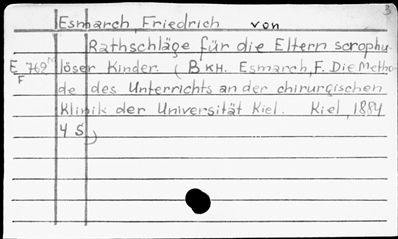 3
Esmarch, Friedrich von
Rathschläge für die Eltern scrophu-
E 762 löser Kinder. (В кн. Esmarch, F. Die Metho-
F
de des Unterrichts an der chirurgischen
Klinik der Universität Kiel. Kiel, 1884
4 S.)